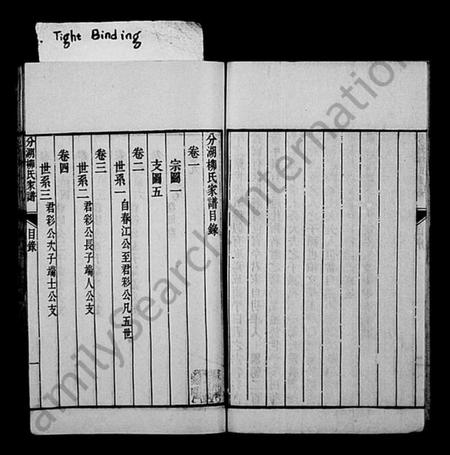 Tight Binding
分湖柳氏家譜目錄
卷一
宗圖一
支圖五
卷二
世系一自春江公至君彩公凡五世
卷三
世系二君彩公長子端人公支
卷四
世系三君彩公次子端士公支
分湖柳氏家譜
目錄
一
FamilySearch International